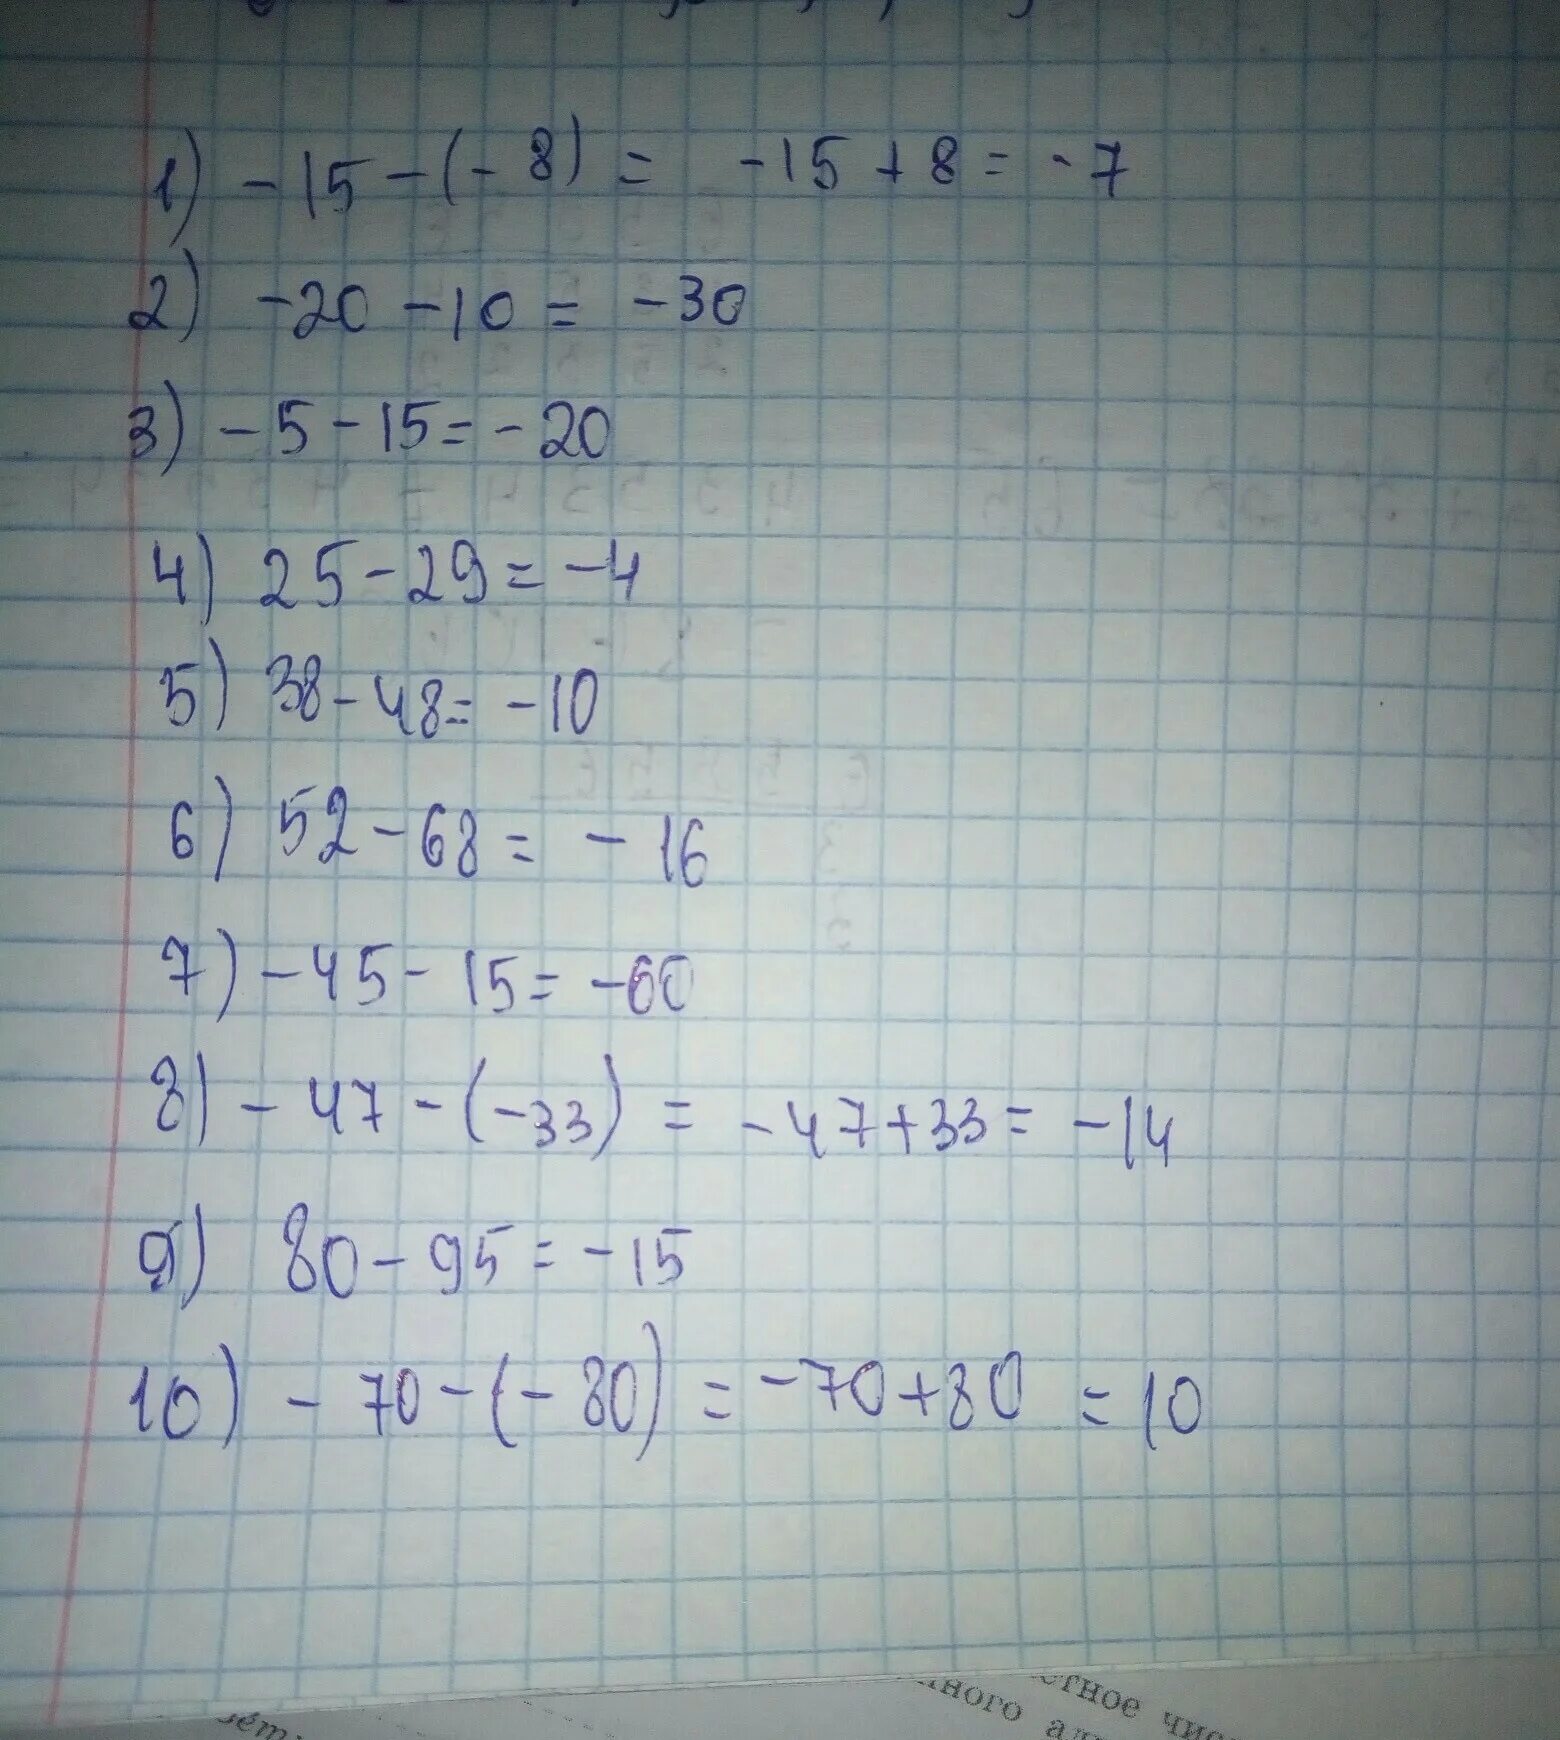 1) -15-(-8)= -15+8=-7
2) -20-10= -30
3) -5-15=-20
4) 25-29=-4
5) 38-48= -10
6) 52-68= -16
7) -45-15= -60
8) -47-(-33) = -47+33= -14
9) 80-95=-15
10) -70-(-80) = -70+80 = 10
етное чис
нного ал